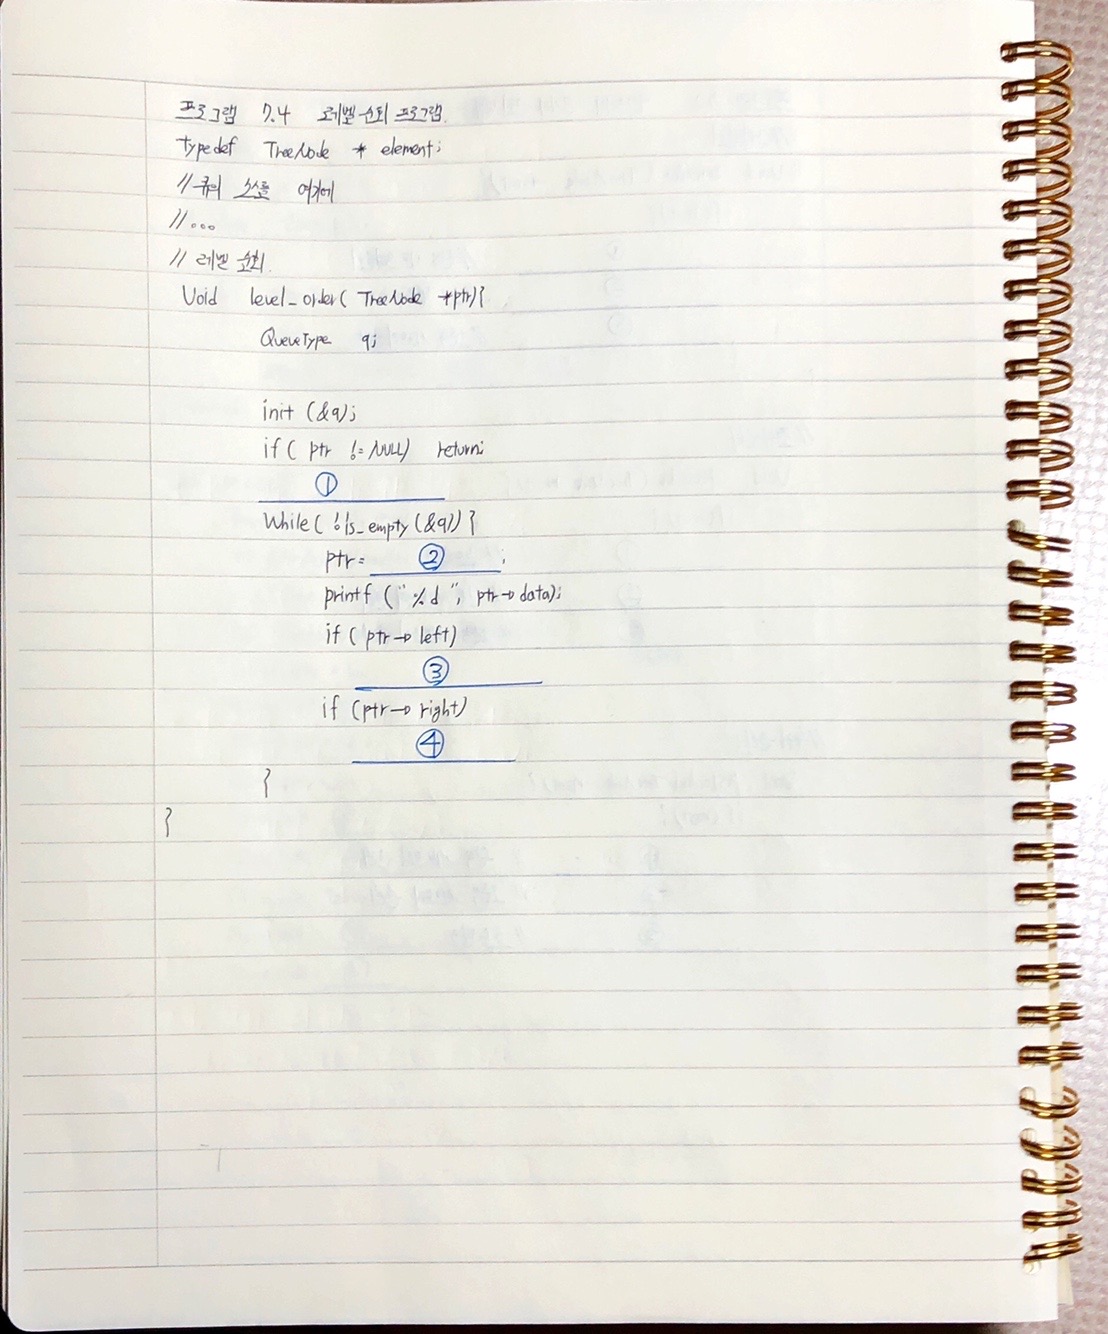 프로그램 7.4 레벨 순회 프로그램.
typedef TreeNode * element;
// 큐의 소스를 여기에
//...
// 레벨 순회.
Void level_order( TreeNode *ptr){
QueueType q;
init (&q);
if( ptr != NULL) return;
①
While( !is_empty (&q)) {
ptr= ② ;
printf ("%d", ptr→data);
if( ptr→left)
③
if (ptr→right)
④
}
}